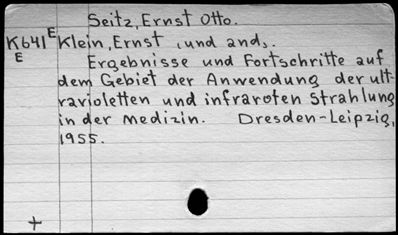 Seitz, Ernst Otto.
K641 E Klein, Ernst, und and.
E Ergebnisse und Fortschritte auf
dem Gebiet der Anwendung der ult-
ravioletten und infraroten Strahlung
in der Medizin. Dresden-Leipzig,
1955.
+